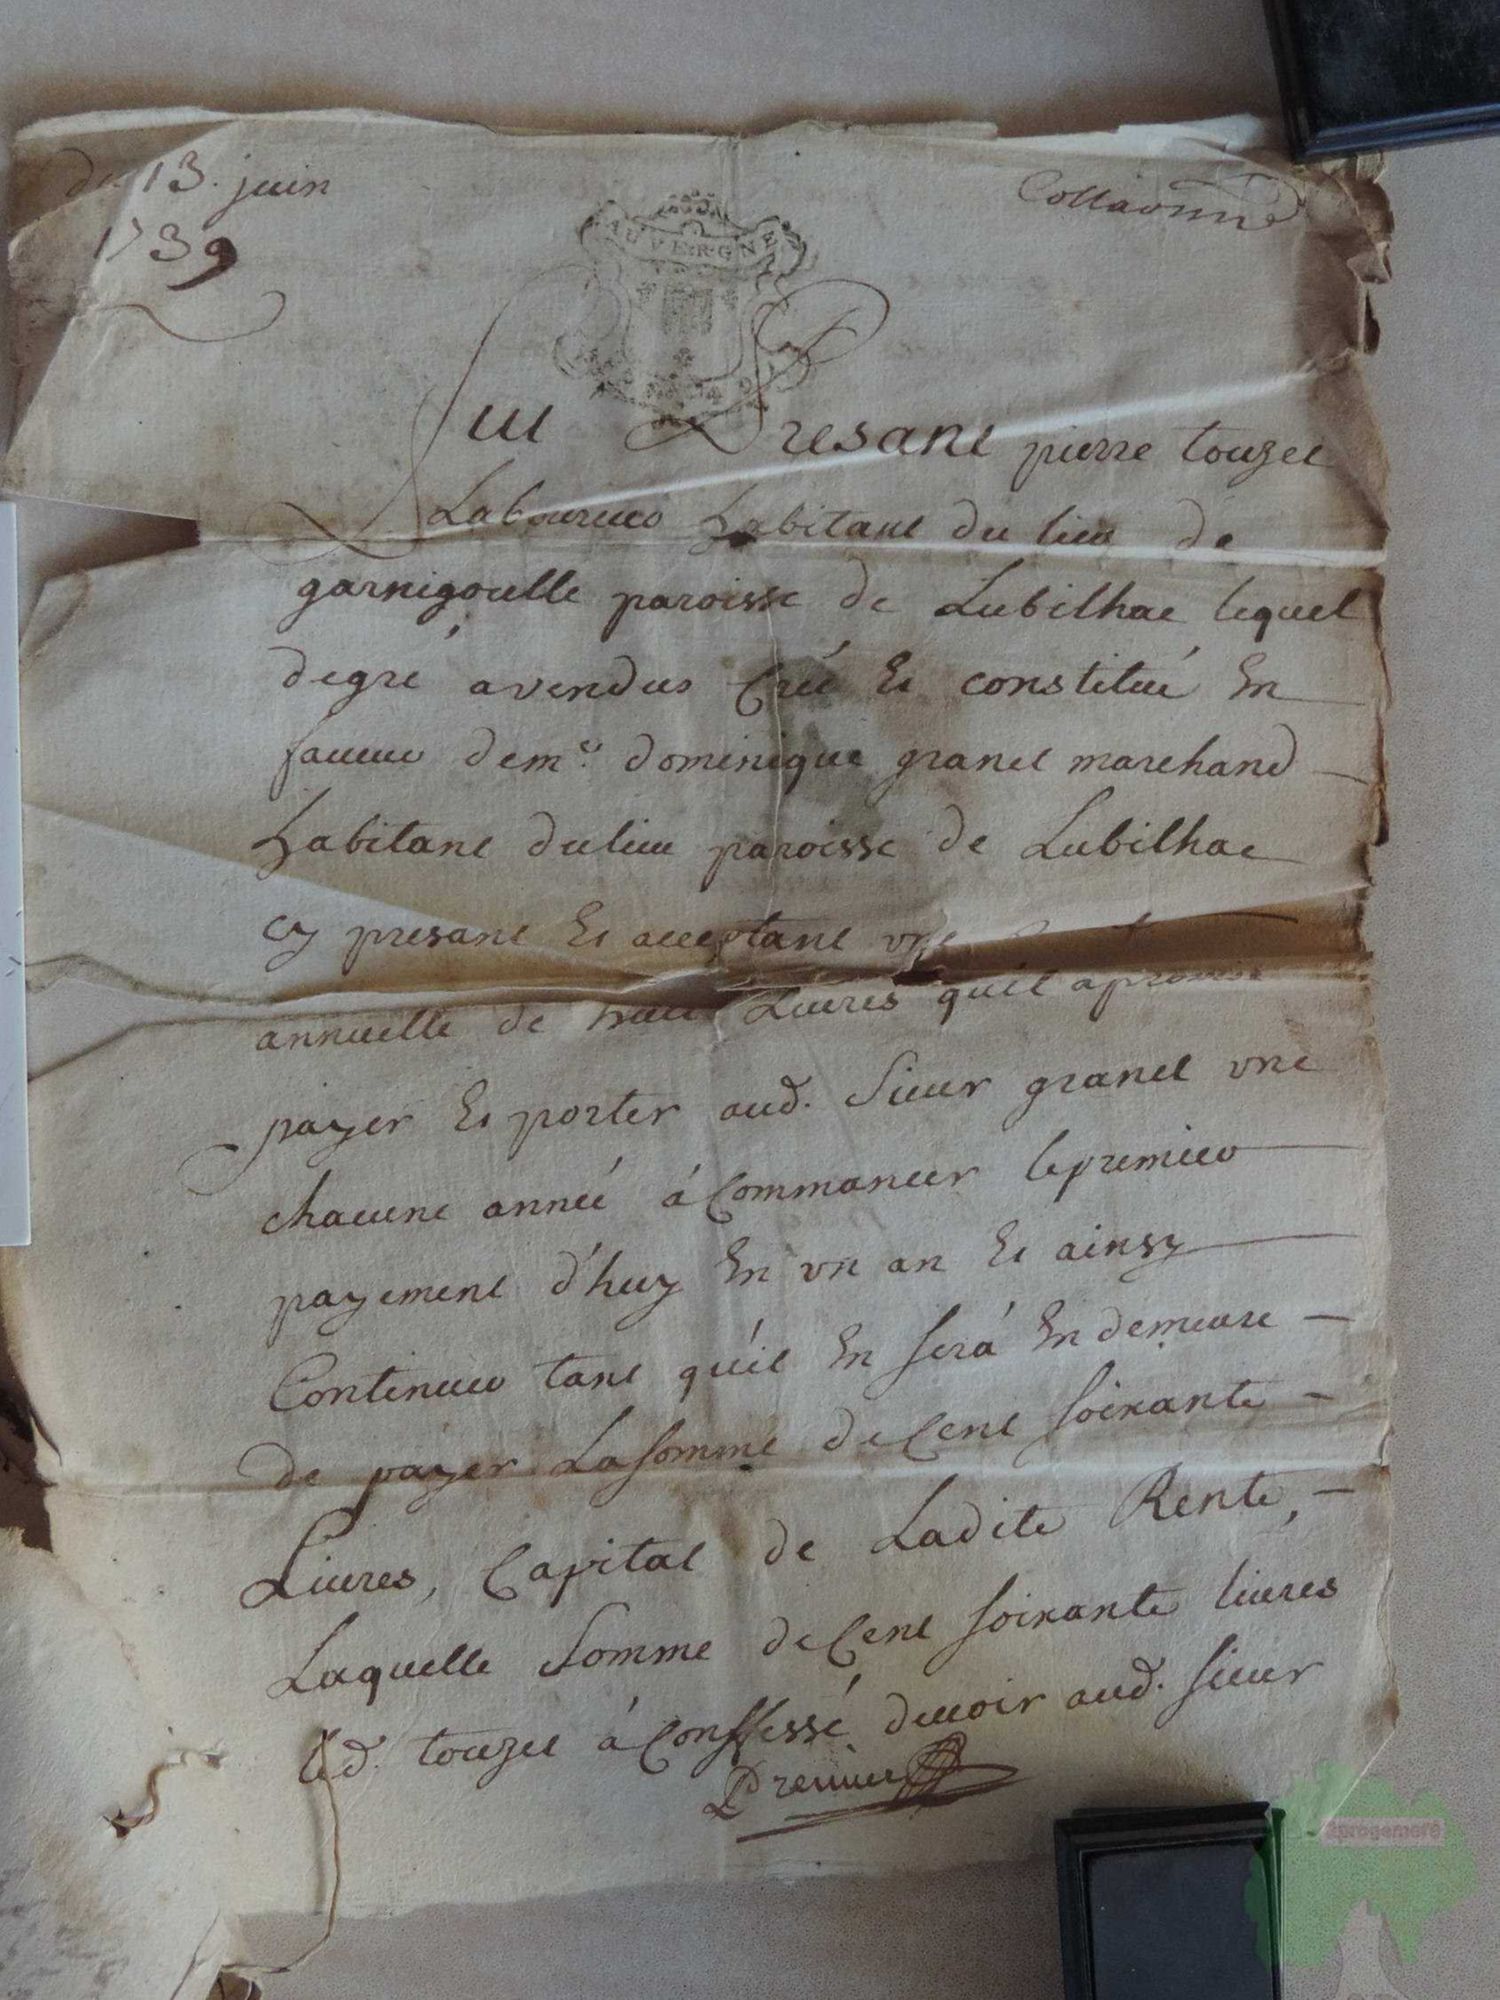 du 13. juin
1739
Collationné
AUVERGNE
fut Presant pierre touzet
Laboureur habitant du lieu de
garnigoulle paroisse de Lubilhac lequel
degré a vendus Créé Et constitué En
faveur de mr. dominique granet marchand
habitant du lieu paroisse de Lubilhac
cy presant Et acceptant une
annuelle de huit Livres quil a promis
payer Et porter aud. Sieur granet une
chacune anneé á Commancer le premier
payement d'huy En un an Et ainsy
Continuer tant quil En será En demeure
de payer La somme de Cent soixante
Livres, Capital de Ladite Rente,
Laquelle somme de Cent soixante livres
led. touzet á Conffessé devoir aud. sieur
2progemere